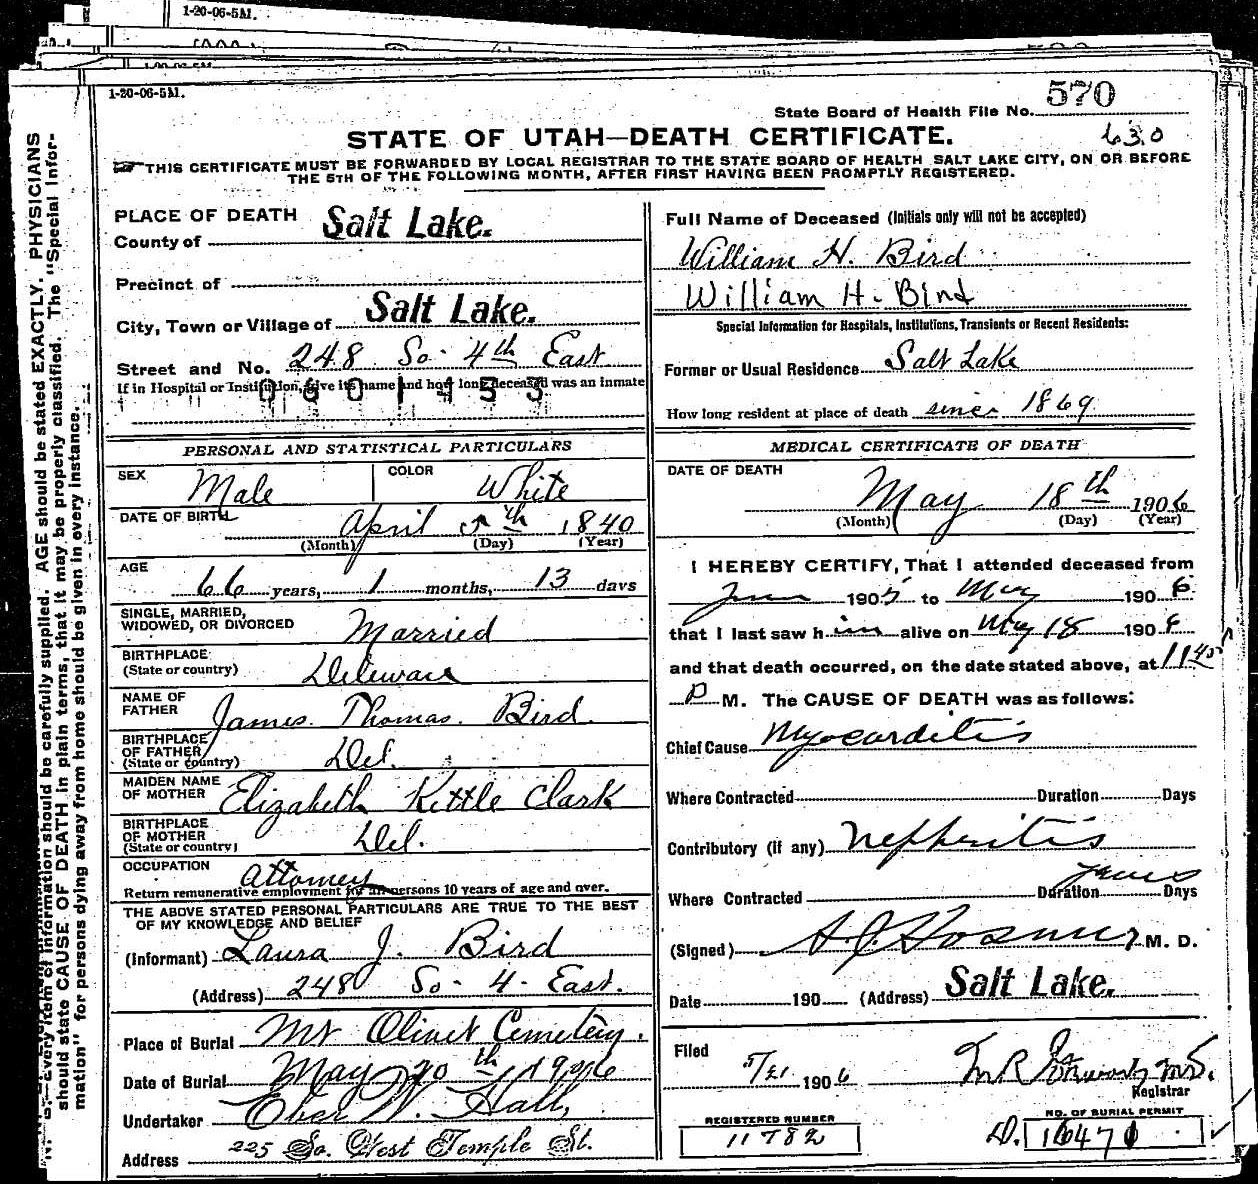 1-20-06-5M.
1-20-06-5M.
State Board of Health File No. 570
STATE OF UTAH—DEATH CERTIFICATE. 630
THIS CERTIFICATE MUST BE FORWARDED BY LOCAL REGISTRAR TO THE STATE BOARD OF HEALTH SALT LAKE CITY, ON OR BEFORE
THE 5TH OF THE FOLLOWING MONTH, AFTER FIRST HAVING BEEN PROMPTLY REGISTERED.
PLACE OF DEATH
County of Salt Lake.
Precinct of
City, Town or Village of Salt Lake.
Street and No. 248 So. 4th East
If in Hospital or Institution, give its name and how long deceased was an inmate
0601153
PERSONAL AND STATISTICAL PARTICULARS
SEX Male COLOR White
DATE OF BIRTH April 5th 1840
(Month) (Day) (Year)
AGE 66 years, 1 months, 13 days
SINGLE, MARRIED,
WIDOWED, OR DIVORCED Married
BIRTHPLACE
(State or country) Deleware
NAME OF
FATHER James. Thomas. Bird.
BIRTHPLACE
OF FATHER
(State or country) Del.
MAIDEN NAME
OF MOTHER Elizabeth Kittle Clark
BIRTHPLACE
OF MOTHER
(State or country) Del.
OCCUPATION Attorney
Return remunerative employment for all persons 10 years of age and over.
THE ABOVE STATED PERSONAL PARTICULARS ARE TRUE TO THE BEST
OF MY KNOWLEDGE AND BELIEF
(Informant) Laura J. Bird
(Address) 248 So. 4. East.
Place of Burial Mt Olivet Cemetery.
Date of Burial May 20th 1906
Undertaker Eber W. Hall,
Address 225 So. West Temple St.
Full Name of Deceased (Initials only will not be accepted)
William H. Bird
William H. Bird
Special Information for Hospitals, Institutions, Transients or Recent Residents:
Former or Usual Residence Salt Lake
How long resident at place of death since 1869
MEDICAL CERTIFICATE OF DEATH
DATE OF DEATH
May 18th 1906
(Month) (Day) (Year)
I HEREBY CERTIFY, That I attended deceased from
June 1905 to May 1906
that I last saw him alive on May 18 1906
and that death occurred, on the date stated above, at 11 45
P M. The CAUSE OF DEATH was as follows:
Chief Cause Myocarditis
Where Contracted Duration Days
Contributory (if any) Nephritis
Where Contracted Duration years Days
(Signed) M. D.
Date 190 (Address) Salt Lake.
Filed 5/21 1906
Registrar
REGISTERED NUMBER
11782
NO. OF BURIAL PERMIT
D. 16470
Every item of information should be carefully supplied. AGE should be stated EXACTLY. PHYSICIANS
should state CAUSE OF DEATH in plain terms, that it may be properly classified. The "Special Infor-
mation" for persons dying away from home should be given in every instance.